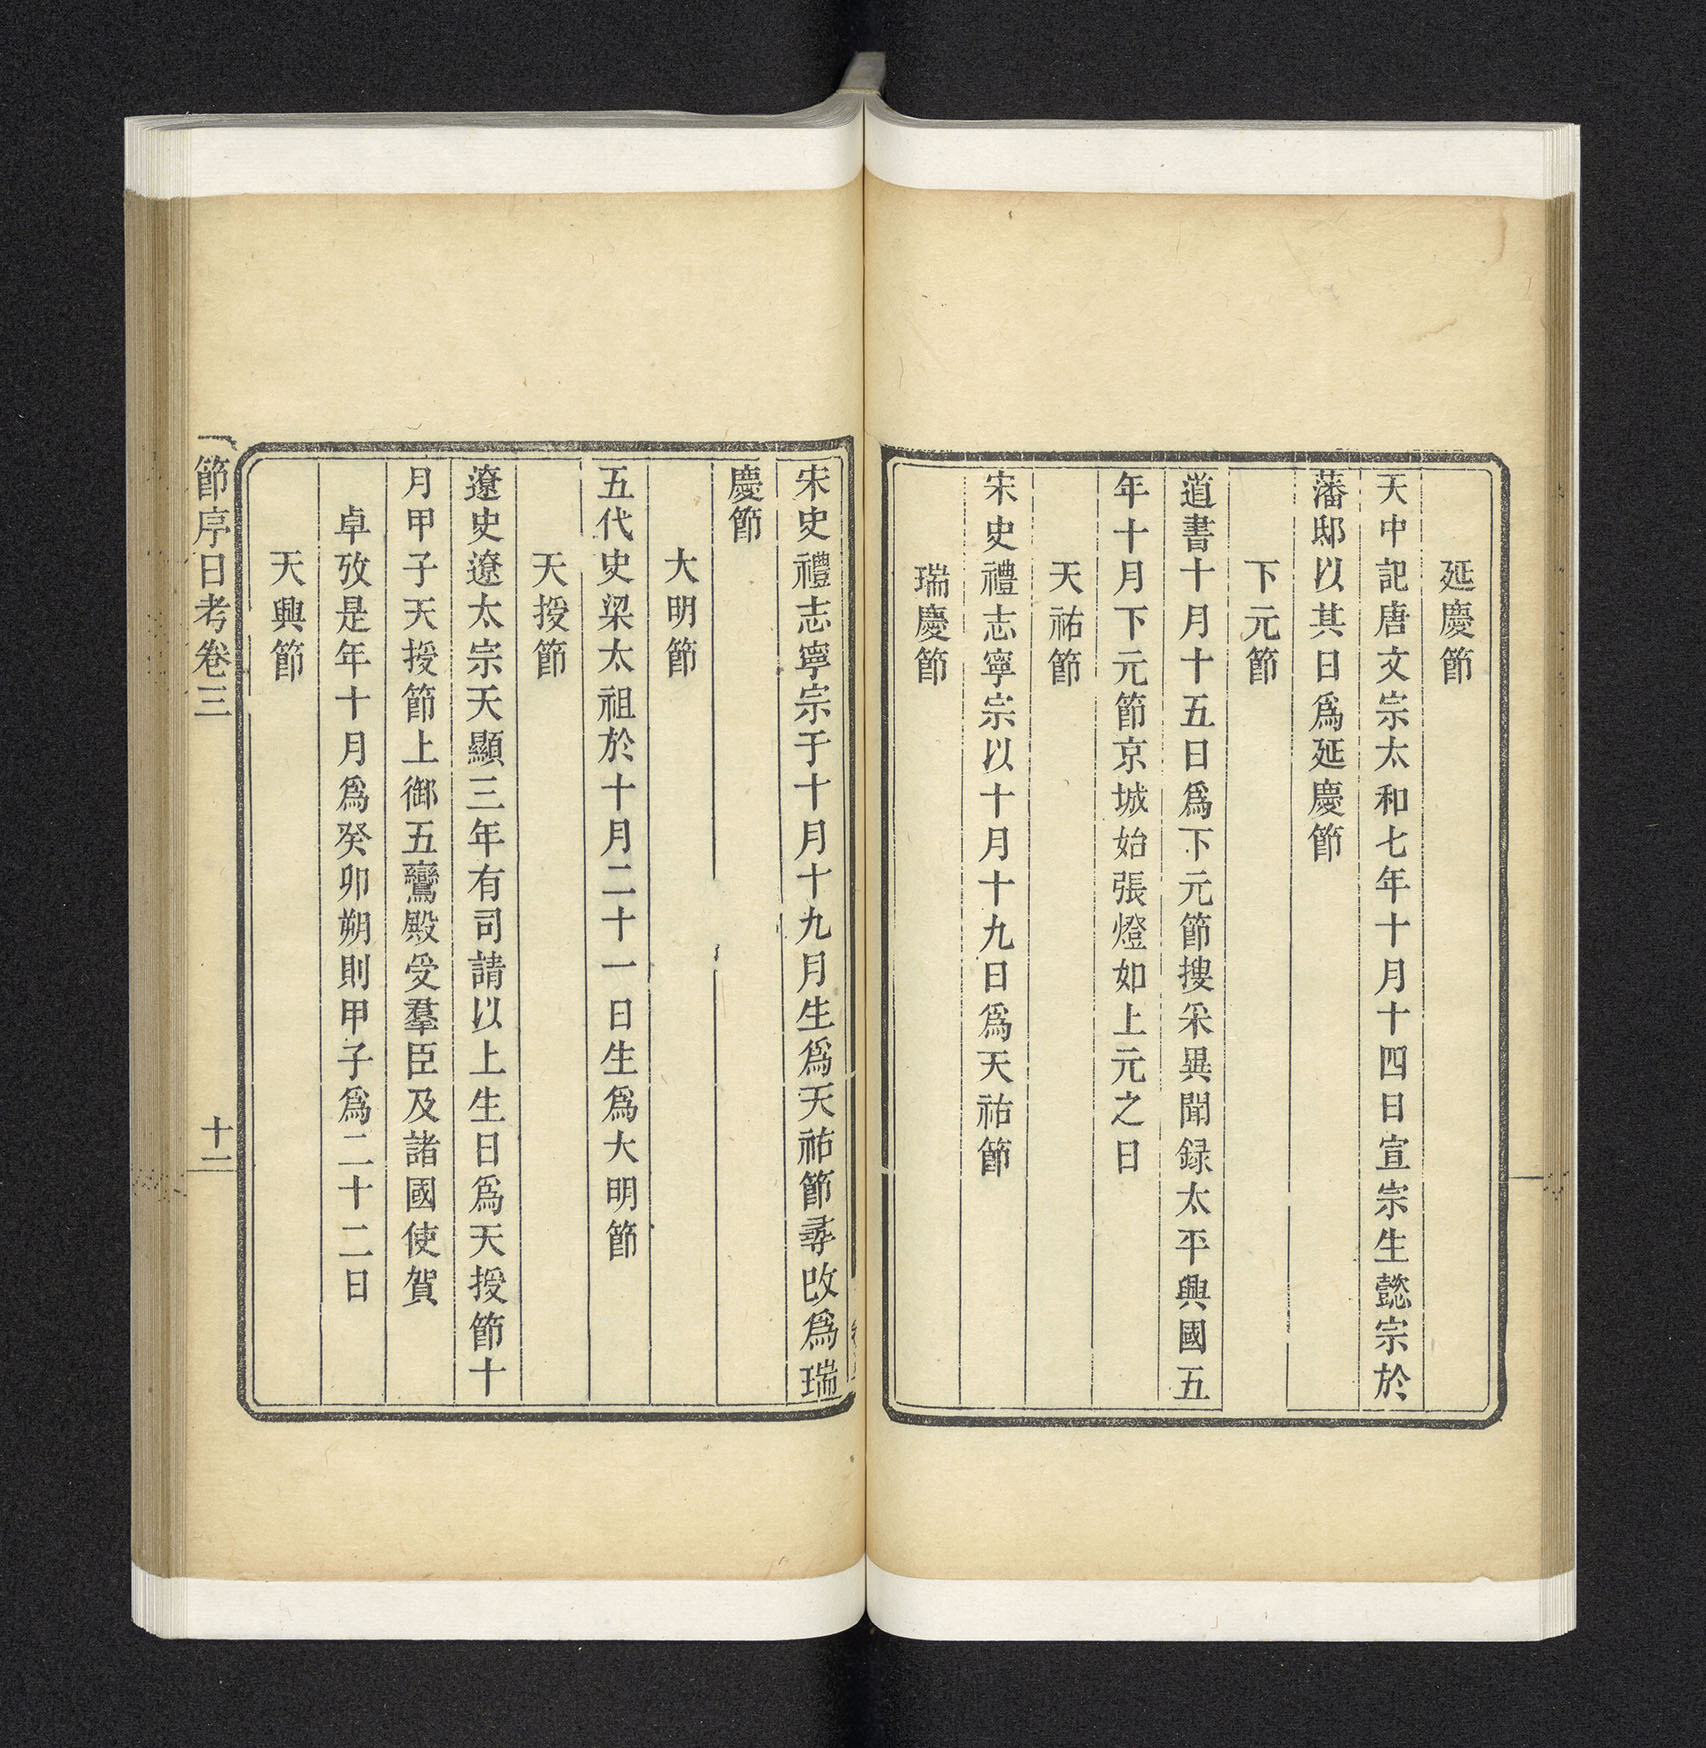 延慶節
天中記唐文宗太和七年十月十四日宣宗生懿宗於
藩邸以其日爲延慶節
下元節
道書十月十五日爲下元節搜采異聞録太平興國五
年十月下元節京城始張燈如上元之日
天祐節
宋史禮志寧宗以十月十九日爲天祐節
瑞慶節
宋史禮志寧宗于十月十九月生爲天祐節尋改爲瑞
慶節
大明節
五代史梁太祖於十月二十一日生爲大明節
天授節
遼史遼太宗天顯三年有司請以上生日爲天授節十
月甲子天授節上御五鸞殿受羣臣及諸國使賀
卓攷是年十月爲癸卯朔則甲子爲二十二日
天興節
節序日考卷三
十二